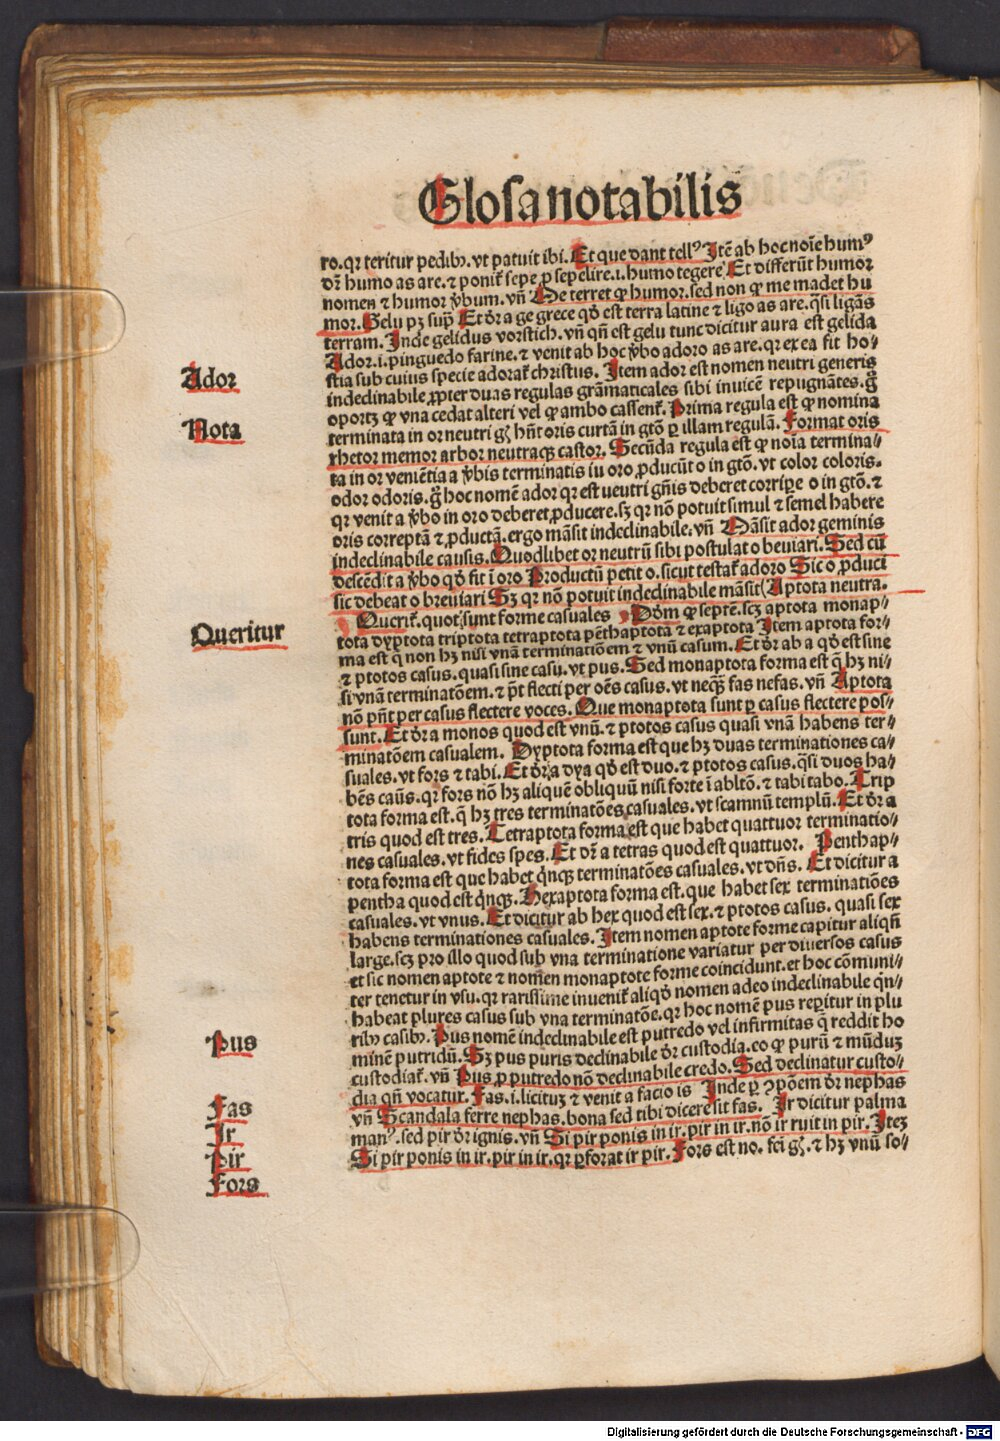 Glosa notabilis
ro. qꝛ teritur pedibꝫ. vt patuit ibi. Et que dant tellꝰ Itē ab hoc noīe humꝰ
dr̄ humo as are. ⁊ ponit̄ sepe ꝓ sepelire .i. humo tegere Et differūt humor
nomen ⁊ humor v̄bum. vn̄ Me terret ꝙ humor. sed non ꝙ me madet hu
mor. Gelu pꝫ sup̄ Et dr̄ a ge grece qd̄ est terra latine ⁊ ligo as are. q̄si ligās
terram. Inde gelidus vorstich. vn̄ qn̄ est gelu tunc dicitur aura est gelida
Ador .i. pinguedo farine. ⁊ venit ab hoc v̄bo adoro as are. qꝛ ex ea fit ho-
stia sub cuius specie adorat̄ christus. Item ador est nomen neutri generis
indeclinabile ꝓpter duas regulas grāmaticales sibi inuicē repugnātes. g̊
oportꝫ ꝙ vna cedat alteri vel ꝙ ambo cassent̄. Prima regula est ꝙ nomina
terminata in or neutri gn̄is hn̄t oris curtā in gtō ꝑ illam regulā. Format oris
rhetor memor arbor neutraqꝫ castor. Secūda regula est ꝙ noīa termina-
ta in or veniētia a v̄bis terminatis in oro ꝓducūt o in gtō. vt color coloris.
odor odoris. g̊ hoc nomē ador qꝛ est ueutri gn̄is deberet corripe o in gtō. ⁊
qꝛ venit a v̄bo in oro deberet ꝓducere. sꝫ qꝛ nō potuit simul ⁊ semel habere
oris correptā ⁊ ꝓductā. ergo māsit indeclinabile. vn̄ Māsit ador geminis
indeclinabile causis. Quodlibet or neutrū sibi postulat o breuiari. Sed cū
descēdit a v̄bo qd̄ fit ī oro Productū petit o. sicut testat̄ adoro Sic o ꝓduci
sic debeat o breuiari Sꝫ qꝛ nō potuit indeclinabile māsit (Aptota neutra.
Querit̄. quot sunt forme casuales Dōm ꝙ septē. scꝫ aptota monap-
tota dyptota triptota tetraptota pēthaptota ⁊ exaptota Item aptota for-
ma est q̄ non hꝫ nisi vnā terminatiōem ⁊ vnū casum. Et dr̄ ab a qd̄ est sine
⁊ ptotos casus. quasi sine casu. vt pus. Sed monaptota forma est q̄ hꝫ ni-
si vnā terminatōem. ⁊ pn̄t flecti per oēs casus. vt neqꝫ fas nefas. vn̄ Aptota
nō pn̄t per casus flectere voces. Que monaptota sunt ꝑ casus flectere pos-
sunt. Et dr̄ a monos quod est vnū. ⁊ ptotos casus quasi vnā habens ter-
minatōem casualem. Dyptota forma est que hꝫ duas terminationes ca-
suales. vt fors ⁊ tabi. Et dr̄ a dya qd̄ est duo. ⁊ ptotos casus. q̄si duos ha-
bēs casus. qꝛ fors nō hꝫ aliquē obliquū nisi forte ī abltō. ⁊ tabi tabo. Trip
tota forma est. q̄ hꝫ tres terminatōes casuales. vt scamnū templū. Et dr̄ a
tris quod est tres. Tetraptota forma est que habet quattuor terminatio-
nes casuales. vt fides spes. Et dr̄ a tetras quod est quattuor. Penthap-
tota forma est que habet qͥnqꝫ terminatōes casuales. vt dn̄s. Et dicitur a
pentha quod est qͥnqꝫ. Hexaptota forma est. que habet sex terminatiōes
casuales. vt vnus. Et dicitur ab hex quod est sex. ⁊ ptotos casus. quasi sex
habens terminationes casuales. Item nomen aptote forme capitur aliqn̄
large. scꝫ pro illo quod sub vna terminatione variatur per diuersos casus
et sic nomen aptote ⁊ nomen monaptote forme coincidunt. et hoc cōmuni-
ter tenetur in vsu. qꝛ rarissime inuenit̄ aliqd̄ nomen adeo indeclinabile qͥn-
habeat plures casus sub vna terminatōe. qꝛ hoc nomē pus reꝑitur in plu
ribꝫ casibꝫ. Pus nomē indeclinabile est putredo vel infirmitas q̄ reddit ho
minē putridū. Sꝫ pus puris declinabile dr̄ custodia. eo ꝙ purū ⁊ mūduꝫ
custodiat̄. vn̄ Pus ꝓ putredo nō declinabile credo. Sed declinatur custo-
dia qn̄ vocatur. Fas .i. licituꝫ ⁊ venit a facio is Inde ꝑ ꝯpōem dr̄ nephas
vn̄ Scandala ferre nephas. bona sed tibi dicere sit fas. Ir dicitur palma
manꝰ. sed pir dr̄ ignis. vn̄ Si pir ponis in ir. pir in ir. nō ir ruit in pir. Iteꝫ
Si pir ponis in ir. pir in ir. qꝛ ꝑforat ir pir. Fors est no. fei gn̄. ⁊ hꝫ vnū so-
Ador
Nota
Queritur
Pus
Fas
Ir
Pir
Fors
Digitalisierung gefördert durch die Deutsche Forschungsgemeinschaft - DFG